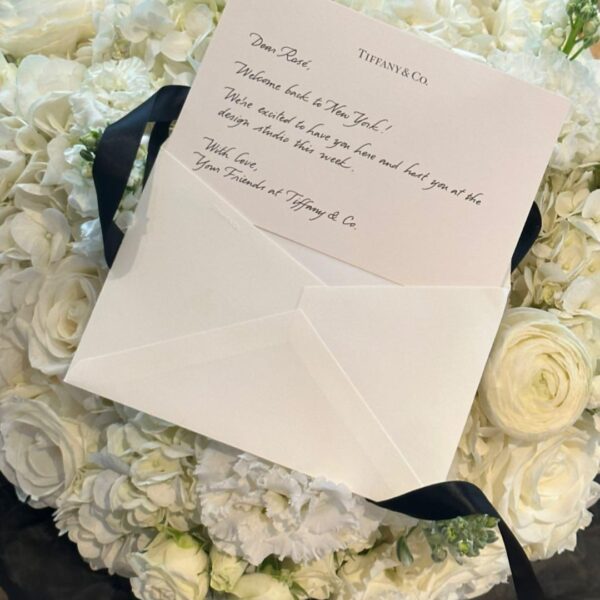 TIFFANY & CO.
Dear Rosé,
Welcome back to New York!
We're excited to have you here and host you at the
design studio this week.
With love,
Your Friends at Tiffany & Co.